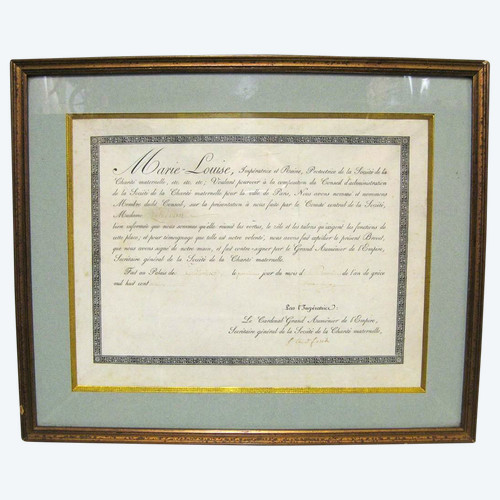 Marie-Louise, Impératrice et Reine, Protectrice de la Société de la
Charité maternelle, etc. etc. etc. Voulant pourvoir à la composition du Conseil d'administration
de la Société de la Charité maternelle pour la ville de Paris, Nous avons nommé et nommons
Membre dudit Conseil, sur la présentation à nous faite par le Comité central de la Société,
Madame
bien informée que nous sommes qu'elle réunit les vertus, le zèle et les talens qu'exigent les fonctions de
cette place; et pour témoignage que telle est notre volonté, nous avons fait expédier le présent Brevet,
que nous avons signé de notre main, et fait contre-signer par le Grand Aumônier de l'Empire,
Secrétaire général de la Société de la Charité maternelle.
Fait au Palais de le jour du mois de l'an de grâce
mil huit cent
Par l'Impératrice.
Le Cardinal Grand Aumônier de l'Empire,
Secrétaire général de la Société de la Charité maternelle,